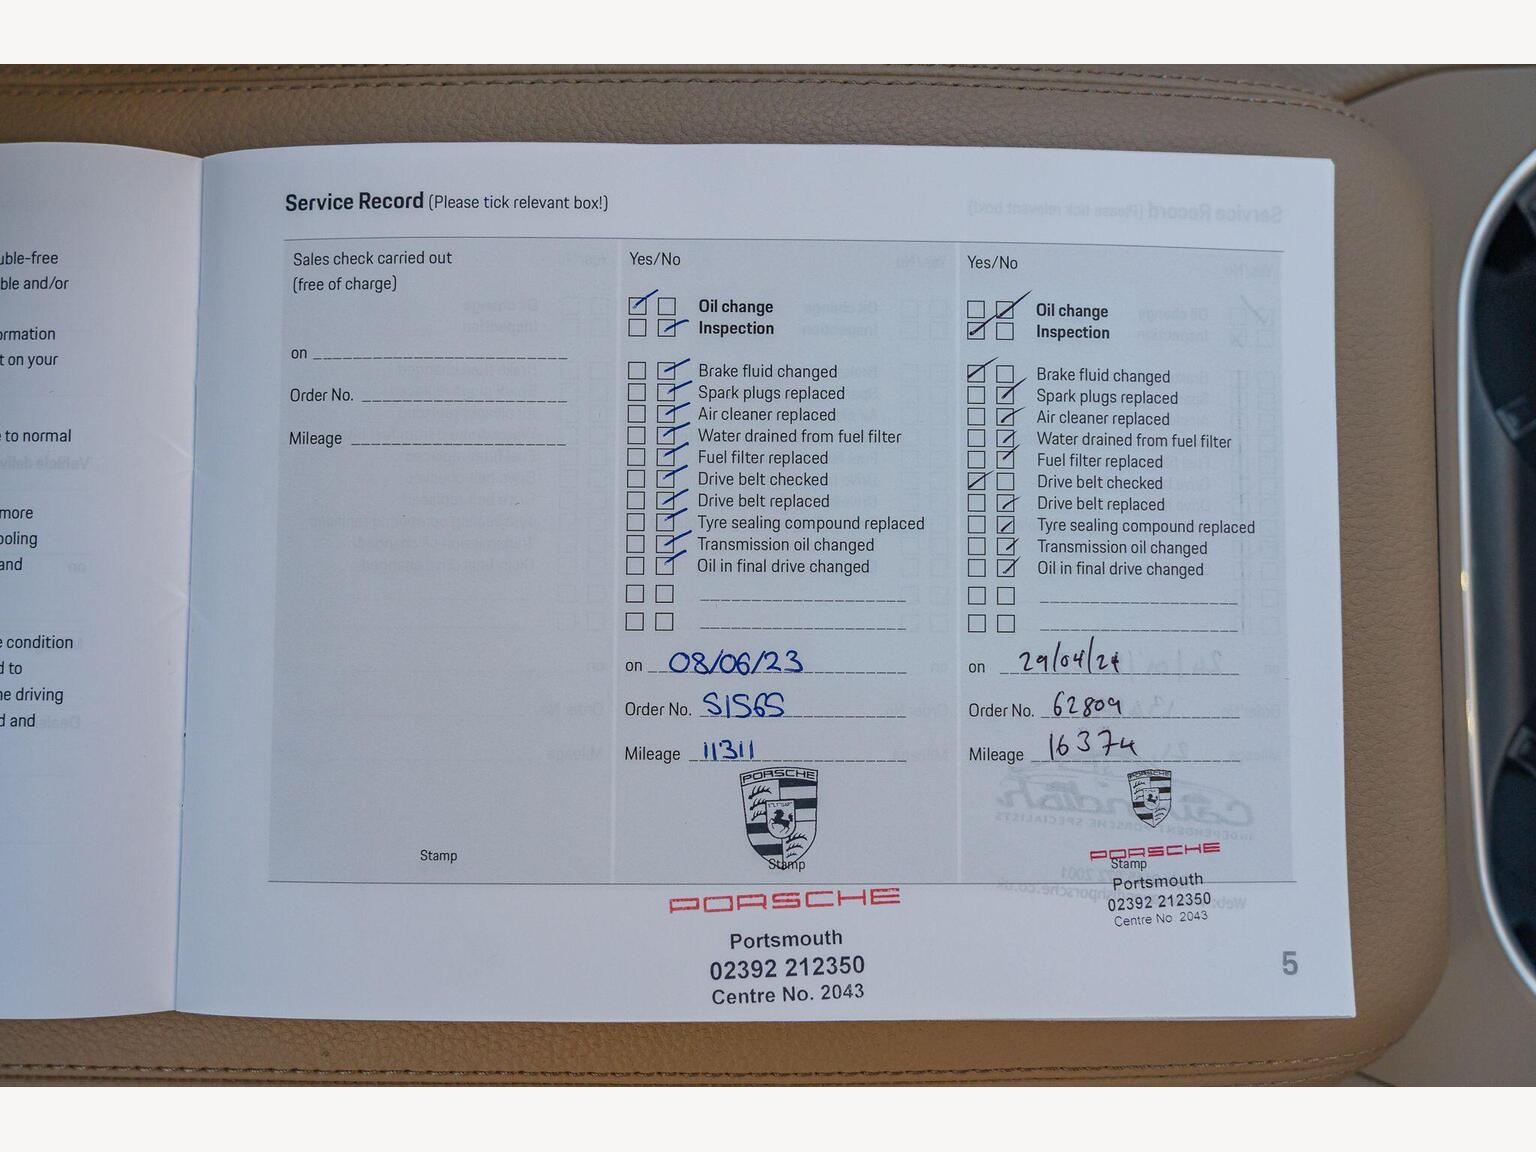 uble-free
ble and/or
ormation
t on your
e to normal
more
ooling
and
e condition
d to
ne driving
d and
Service Record (Please tick relevant box!)
Sales check carried out
(free of charge)
on
Order No.
Mileage
Stamp
Yes/No
Oil change
Inspection
Brake fluid changed
Spark plugs replaced
Air cleaner replaced
Water drained from fuel filter
Fuel filter replaced
Drive belt checked
Drive belt replaced
Tyre sealing compound replaced
Transmission oil changed
Oil in final drive changed
on 08/06/23
Order No. S1565
Mileage 11311
PORSCHE
Stamp
PORSCHE
Portsmouth
02392 212350
Centre No. 2043
Yes/No
Oil change
Inspection
Brake fluid changed
Spark plugs replaced
Air cleaner replaced
Water drained from fuel filter
Fuel filter replaced
Drive belt checked
Drive belt replaced
Tyre sealing compound replaced
Transmission oil changed
Oil in final drive changed
on 29/04/24
Order No. 62809
Mileage 16374
PORSCHE
PORSCHE
Stamp
Portsmouth
02392 212350
Centre No 2043
5